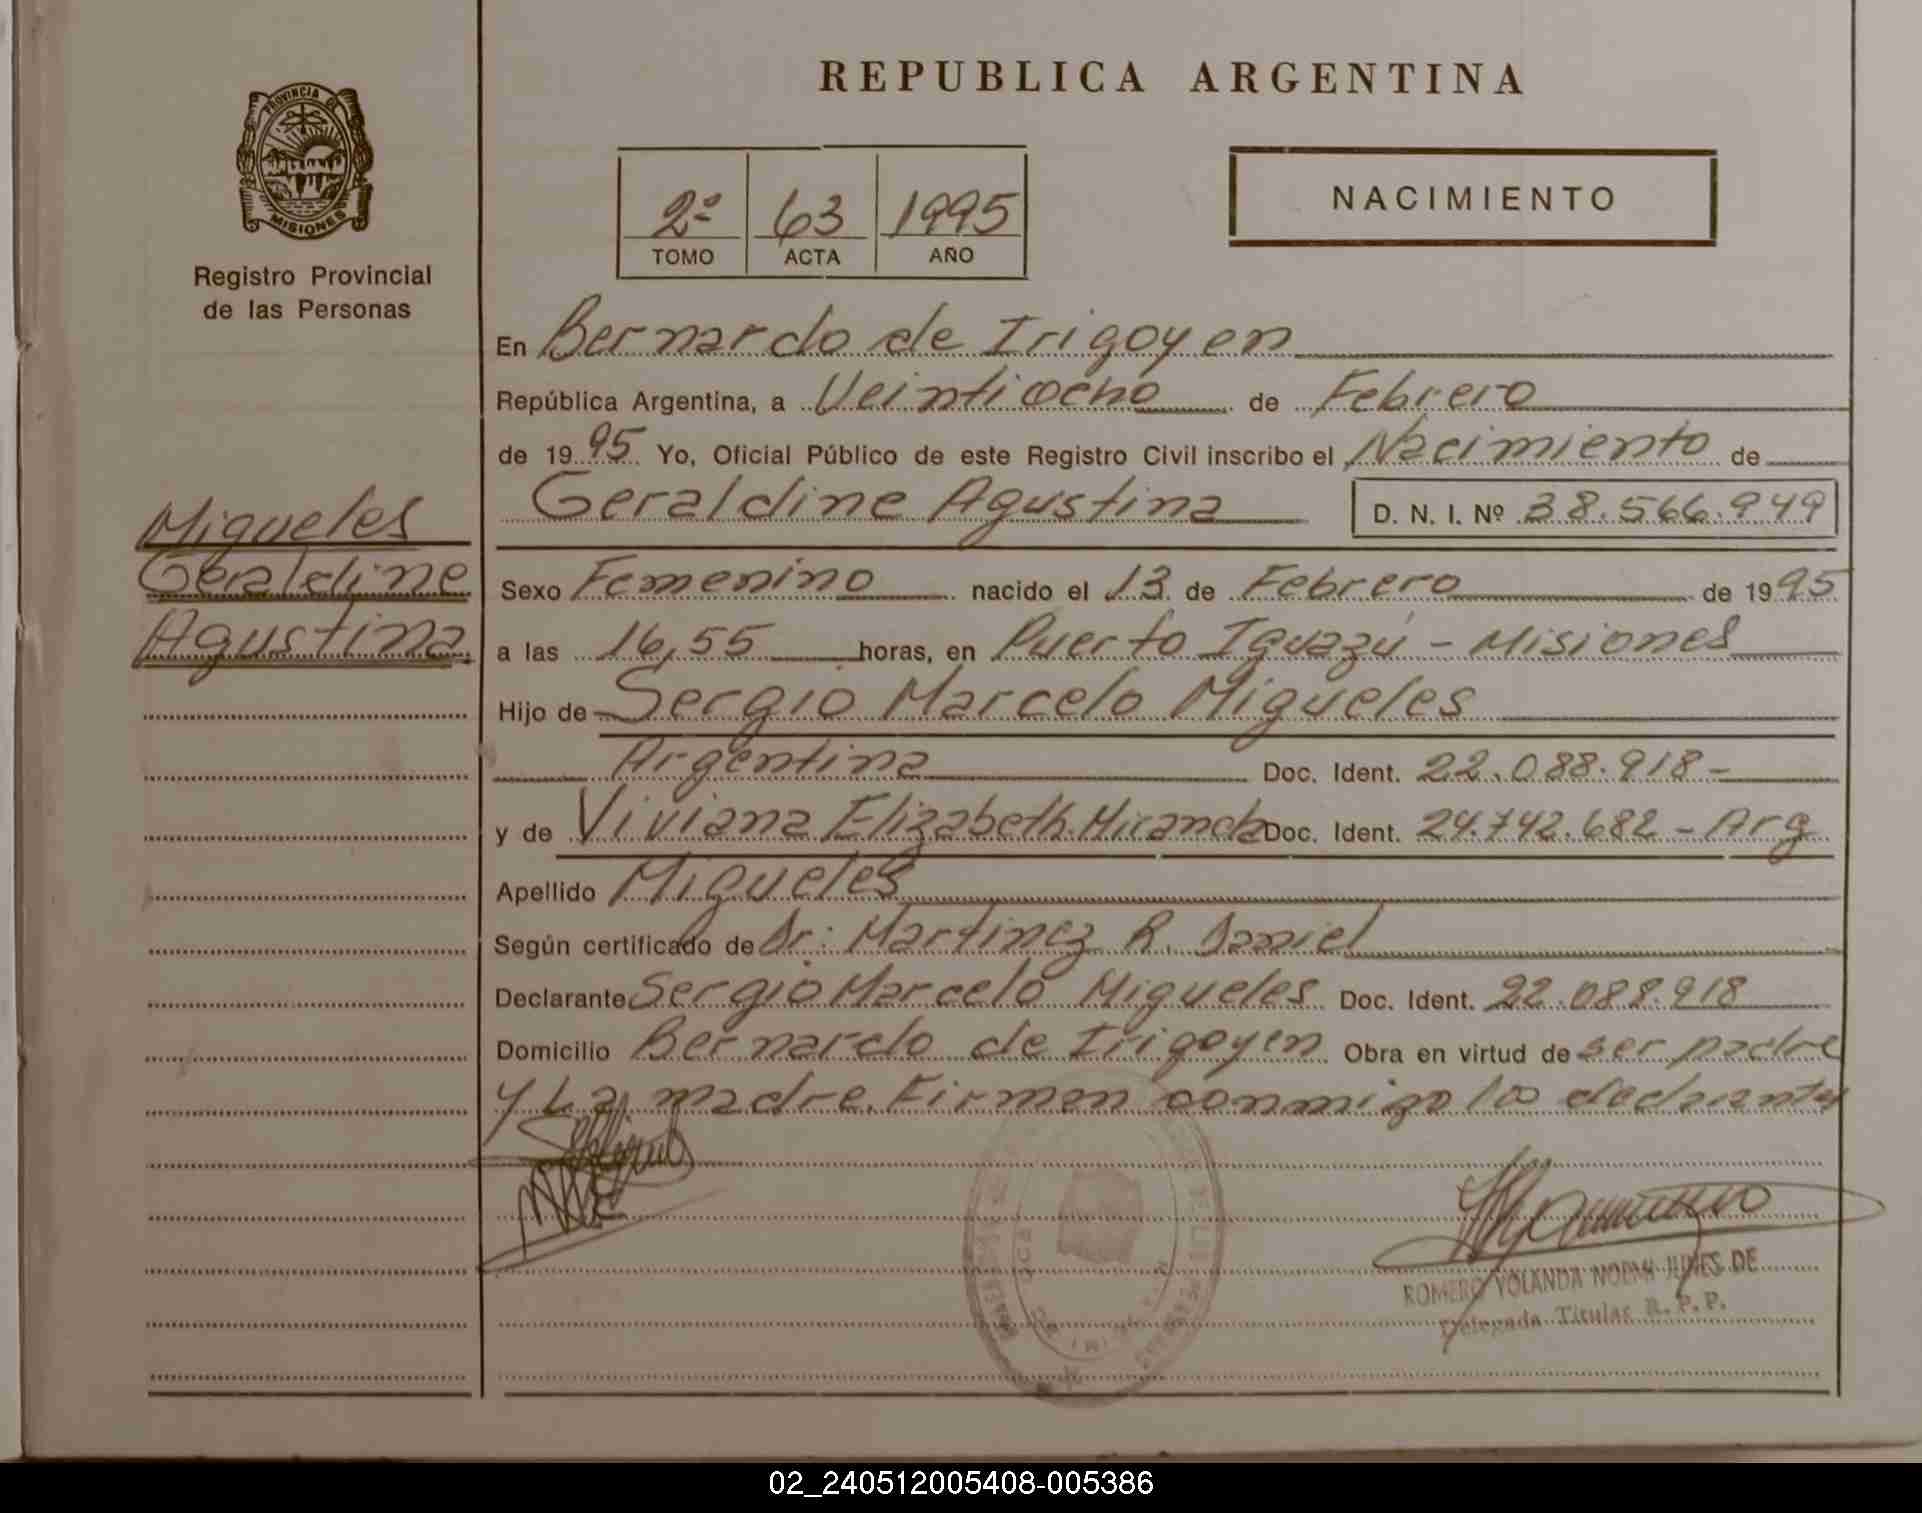 REPUBLICA ARGENTINA
PROVINCIA DE
MISIONES
Registro Provincial
de las Personas
2º 63 1995
TOMO ACTA AÑO
NACIMIENTO
En Bernardo de Irigoyen
República Argentina, a Veintiocho de Febrero
de 1995 Yo, Oficial Público de este Registro Civil inscribo el Nacimiento de
Geraldine Agustina D. N. I. Nº 38.566.949
Migueles
Geraldine
Agustina
Sexo Femenino nacido el 13 de Febrero de 1995
a las 16,55 horas, en Puerto Iguazú - Misiones
Hijo de Sergio Marcelo Migueles
Argentina Doc. Ident. 22.088.918-
y de Viviana Elizabeth Miranda Doc. Ident. 24.742.682 - Arg
Apellido Migueles
Según certificado de Dr: Martinez R. Daniel
Declarante Sergio Marcelo Migueles Doc. Ident. 22.088.918
Domicilio Bernardo de Irigoyen Obra en virtud de ser padre
y La madre. Firman conmigo los declarantes
ROMERO YOLANDA NOEMI JUNES DE
Delegada Titular R. P. P.
02_240512005408-005386